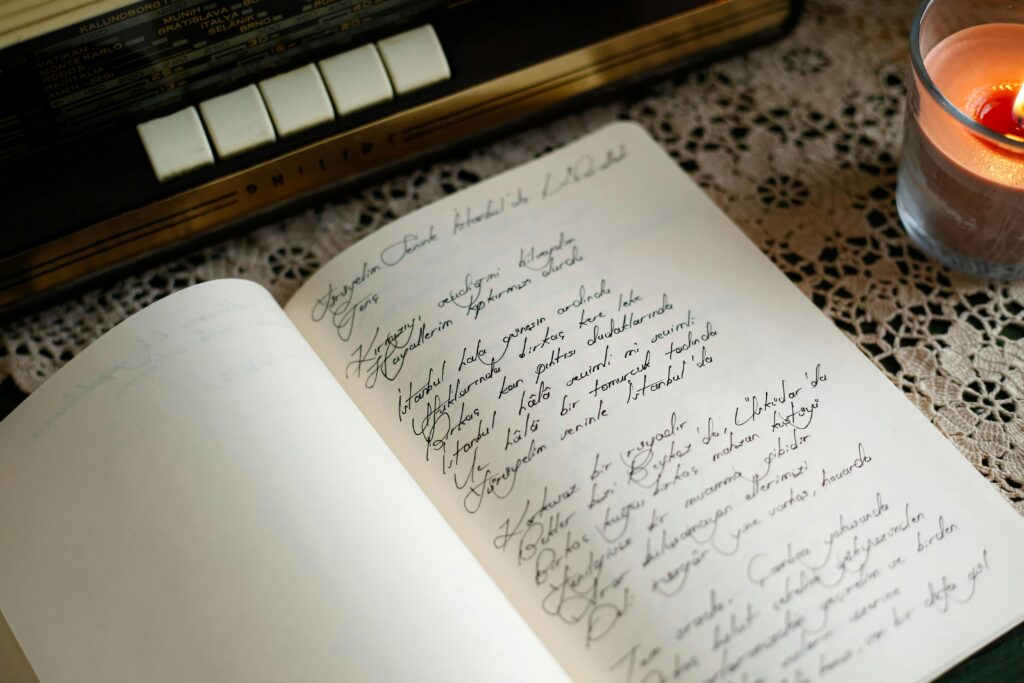 KALUNDBORG
MUNIH
BRATISLAVA
ITALYA
SELÂNIK
BRNO
VATIKAN
MONTE KARLO
RODOS
PHILIPS
Yürüyelim Seninle İstanbul'da Nurullah
Genç
Kırmızıyı sevdiğini bilseydim
Hayallerim kıpkırmızı olurdu
İstanbul hala güneşin ardında
Ufuklarında birkaç kere leke
Birkaç kan pıhtısı dudaklarında
İstanbul hâlâ sevimli mi sevimli
Ve hâlâ bir tomurcuk tadında
Yürüyelim seninle İstanbul'da
Korkusuz bir rüyadır
Bekler bizi Beykoz'da, Üsküdar'da
Birkaç kuğu, birkaç mahzun kuştüyü
bir muamma gibidir
Arar bulunmayan ellerimizi
Deli rüzgâr yine sarhoş, hovarda
Tam orada, Çamlıca yokuşunda
Birkaç bulut çekelim gökyüzünden
geçirelim ve birden
üzerine
bir defa gel